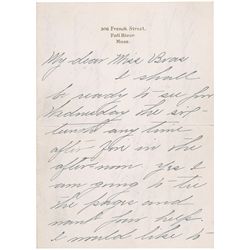 306 French Street.
Fall River
Mass.
My dear Miss
I shall
be ready to see
Wednesday the
any time
after five in the
afternoon Yes I
am going to
the and
for help
I would like to